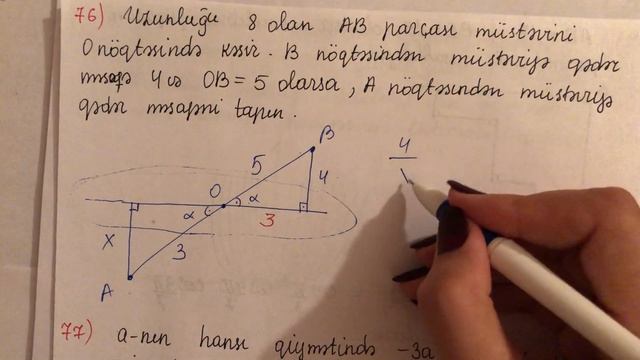 76) Uzunluğu 8 olan AB parçası müstəvini
O nöqtəsində kəsir. B nöqtəsindən müstəviyə qədər
məsafə 4 və OB = 5 olarsa, A nöqtəsindən müstəviyə
qədər məsafəni tapın.
B
5
4
4
O
α
α
3
X
3
A
77) a-nın hansı qiymətində -3a